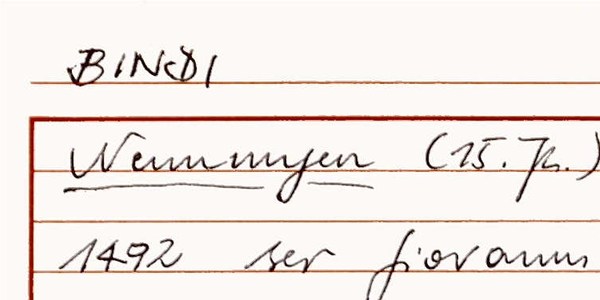 BINDI
Nennungen (15. Jh.)
1492 ser Giovanni